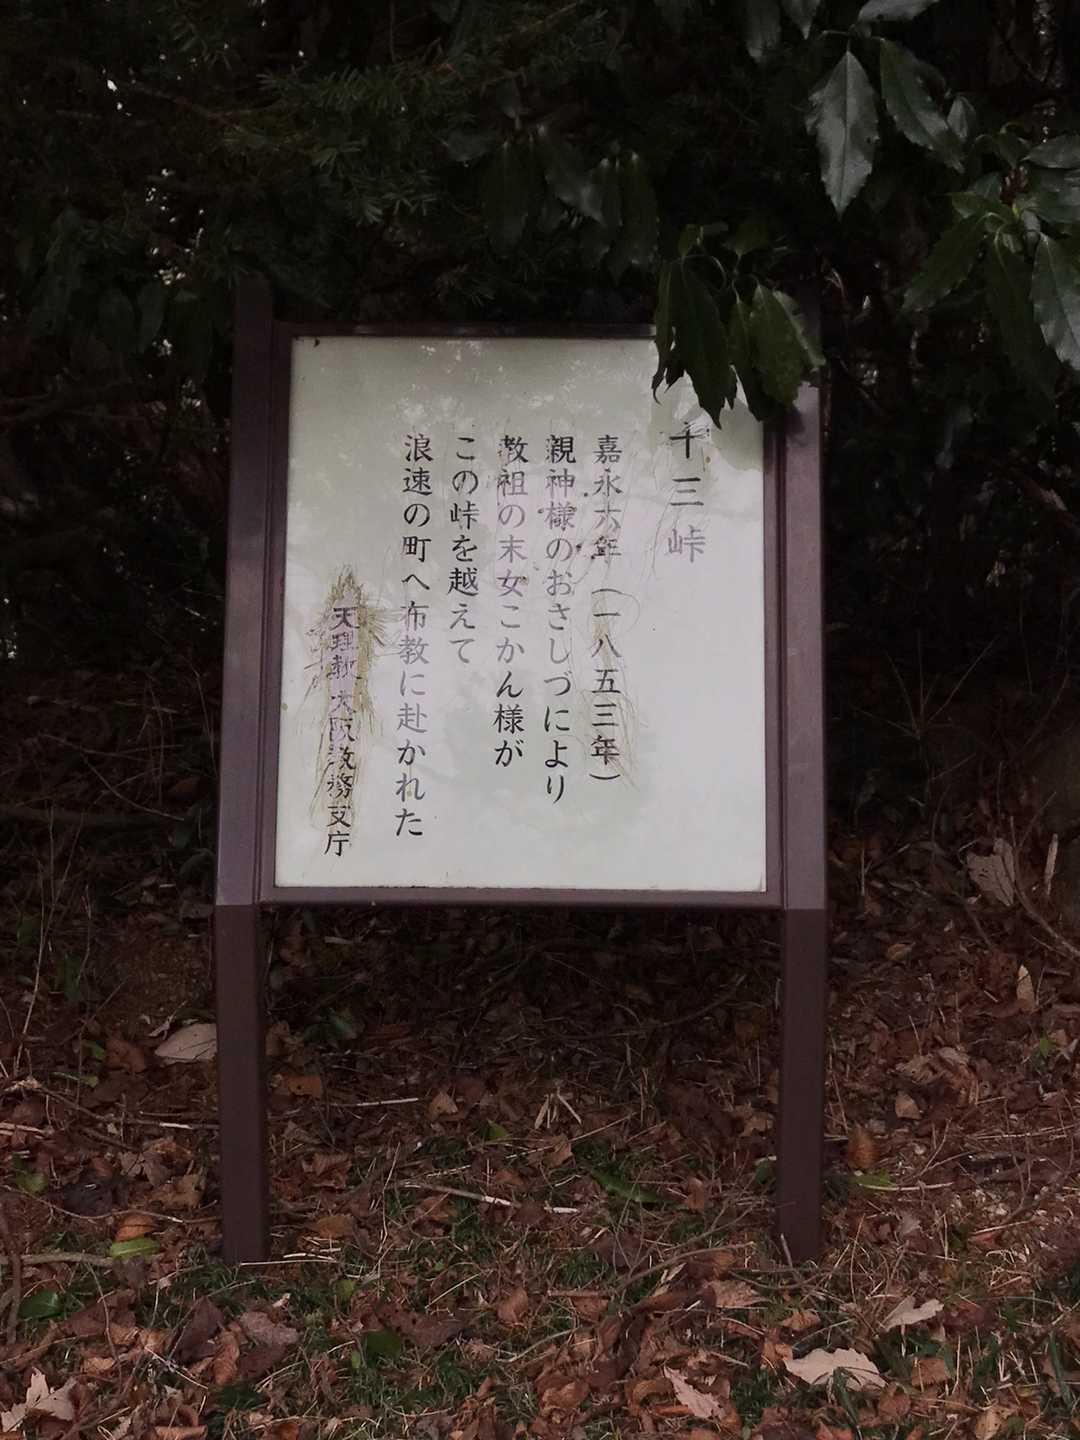 十三峠
嘉永六年（一八五三年）
親神様のおさしづにより
教祖の末女こかん様が
この峠を越えて
浪速の町へ布教に赴かれた
天理教大阪教務支庁